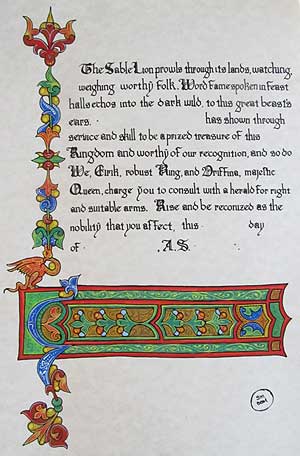 The Sable Lion prowls through its lands, watching,
weighing worthy folk. Word fame spoken in feast
halls echos into the dark wild, to this great beast's
ears. has shown through
service and skill to be a prized treasure of this
Kingdom and worthy of our recognition, and so do
We, Eirik, robust King, and Driffina, majestic
Queen, charge you to consult with a herald for right
and suitable arms. Rise and be reconized as the
nobility that you affect, this day
of , A.S.